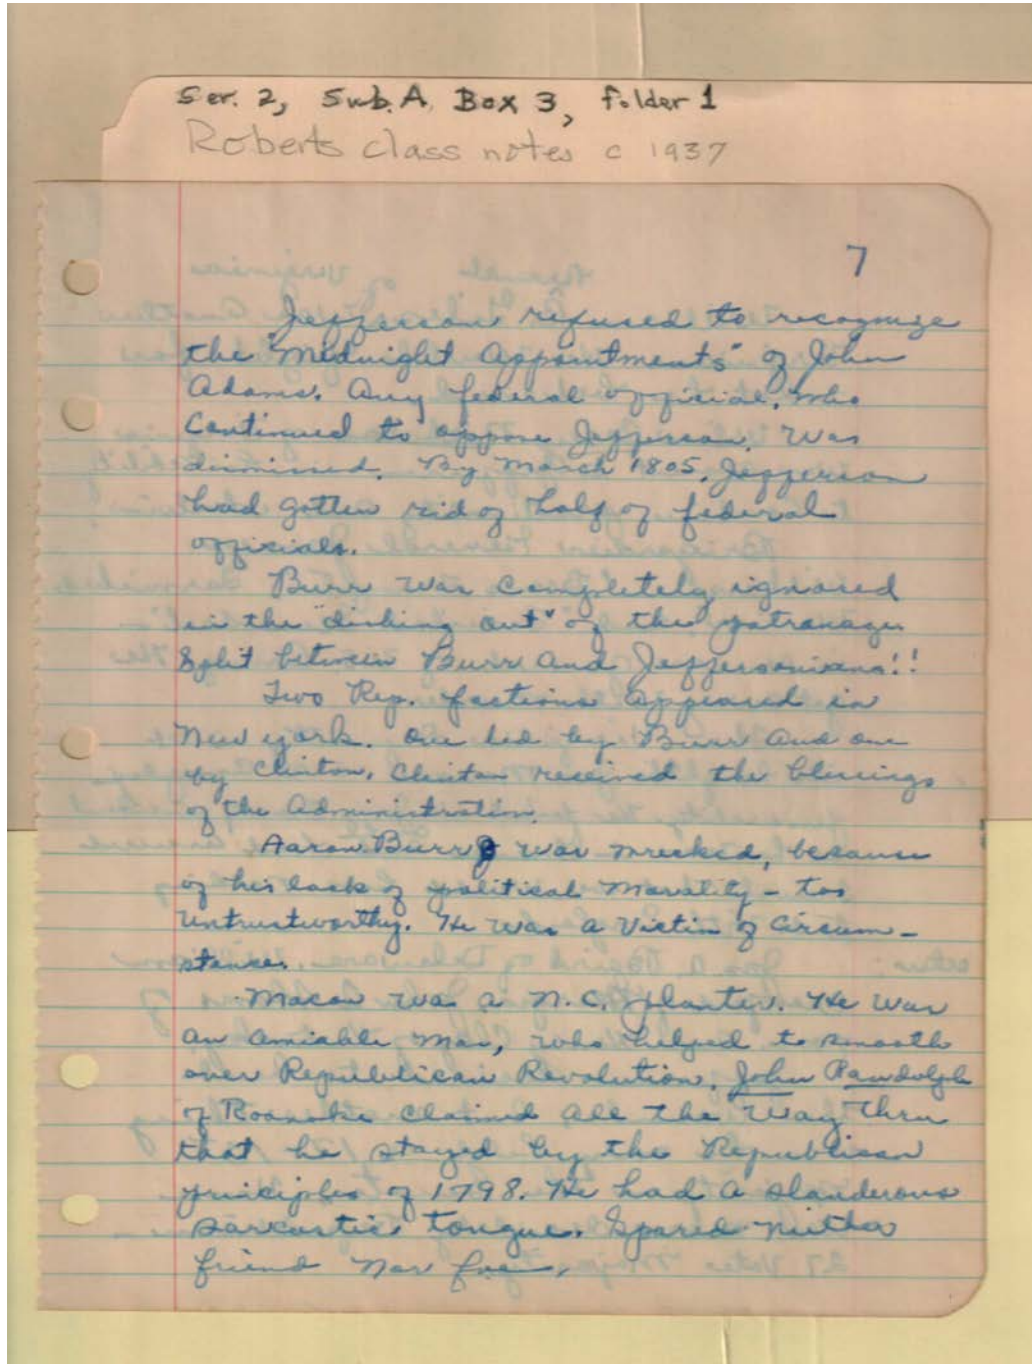 Ser. 2, Sub. A Box 3, folder 1
Roberts class notes c 1937
7
Jefferson refused to recognize
the "Midnight Appointments" of John
Adams. Any federal official, who
Continued to oppose Jefferson, was
dismissed. By March 1805, Jefferson
had gotten rid of half of federal
officials.
Burr was completely ignored
in the "dishing out" of the patronage.
Split between Burr and Jeffersonians!!
Two Rep. factions appeared in
New York. One led by Burr and one
by Clinton. Clinton received the blessings
of the Administration.
Aaron Burr was wrecked, because
of his lack of political morality – too
untrustworthy. He was a Victim of Circum-
stance.
Macon was a N.C. planter. He was
an amiable man, who helped to smooth
over Republican Revolution. John Randolph
of Roanoke claimed all the way thru
that he stayed by the Republican
principles of 1798. He had a slanderous
sarcastic tongue. Spared neither
friend nor foe.